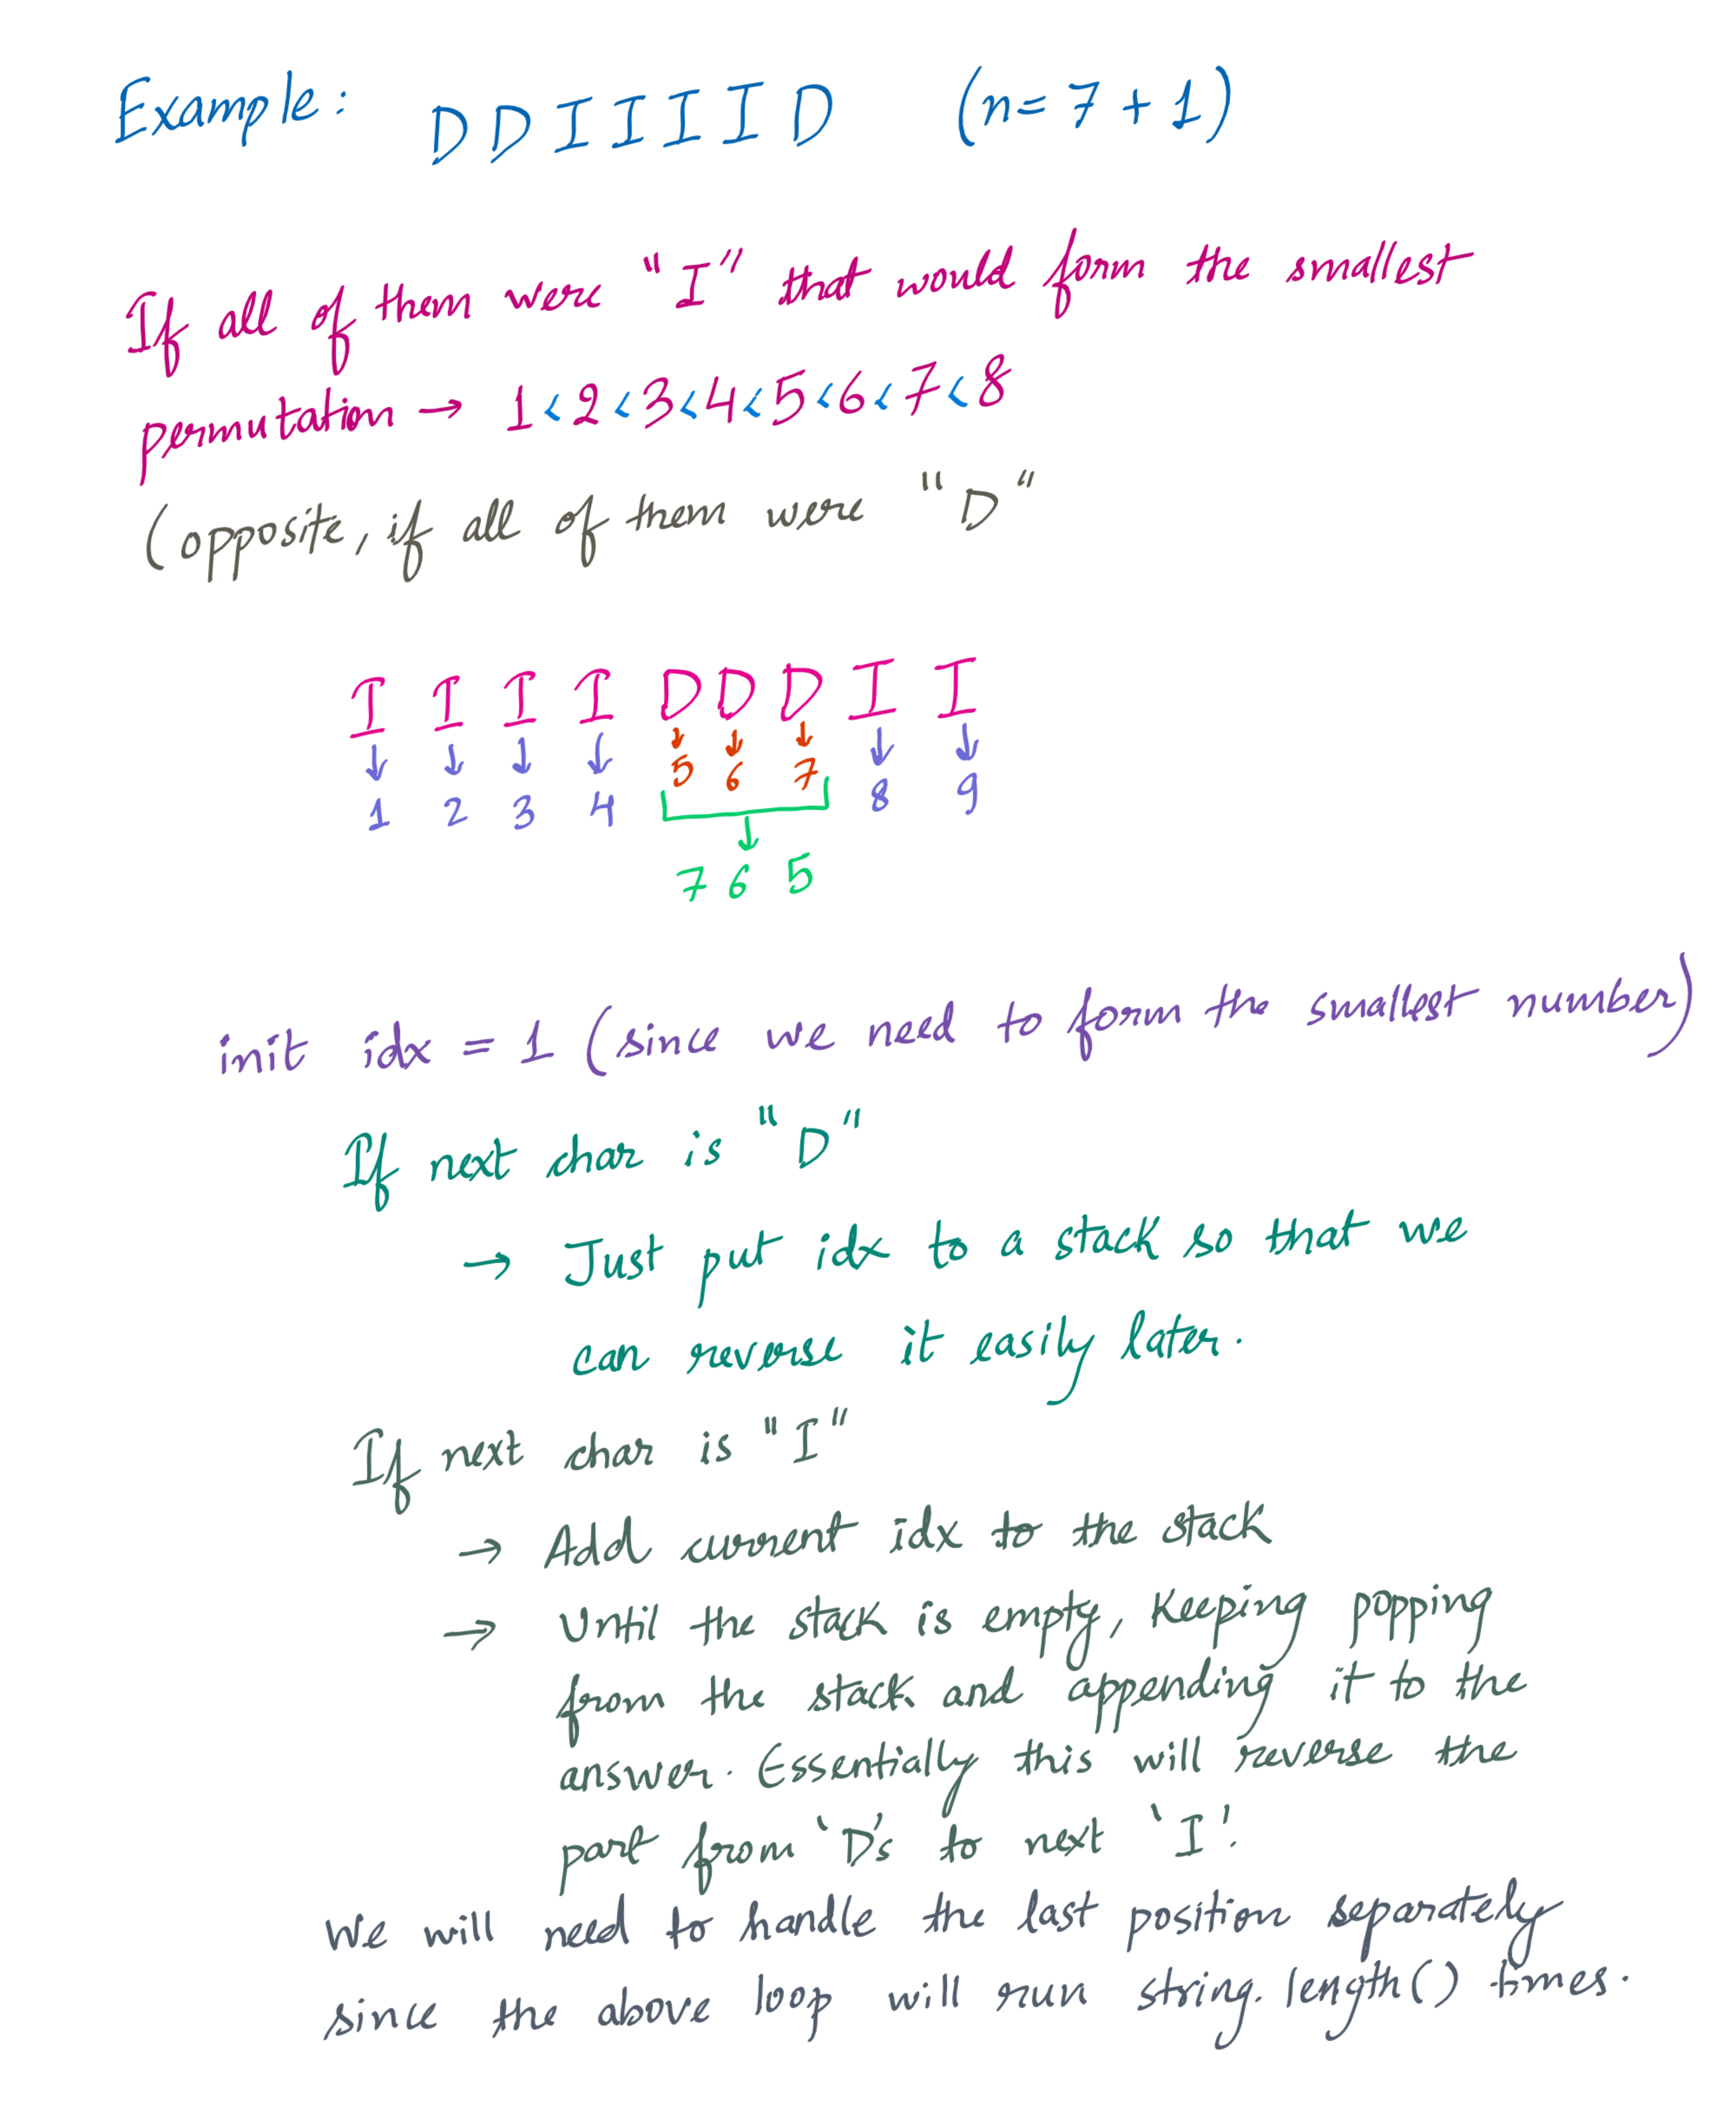 Example: DDIIIID (n=7+1)
If all of them were "I" that would form the smallest
permutation → 1<2<3<4<5<6<7<8
(opposite, if all of them were "D"
I I I I D D D I I
↓ ↓ ↓ ↓ ↓ ↓ ↓ ↓ ↓
1 2 3 4 5 6 7 8 9
↓
7 6 5
init idx = 1 (since we need to form the smallest number)
If next char is "D"
→ Just put idx to a stack so that we
can reverse it easily later.
If next char is "I"
→ Add current idx to the stack
→ Until the stack is empty, Keeping popping
from the stack and appending it to the
answer. Essentially this will reverse the
part from 'D's to next 'I'.
We will need to handle the last position separately
since the above loop will run string.length() times.